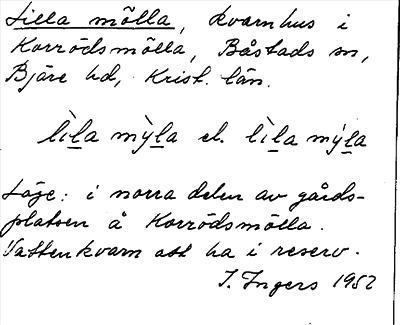 Lilla mölla, kvarnhus i
Korrödsmölla, Båstads sn,
Bjäre hd, Krist. län.
lìla mỳla el. lìla mýla
Läge: i norra delen av gårds-
platsen å Korrödsmölla.
Vattenkvarn att ha i reserv.
I. Ingers 1952